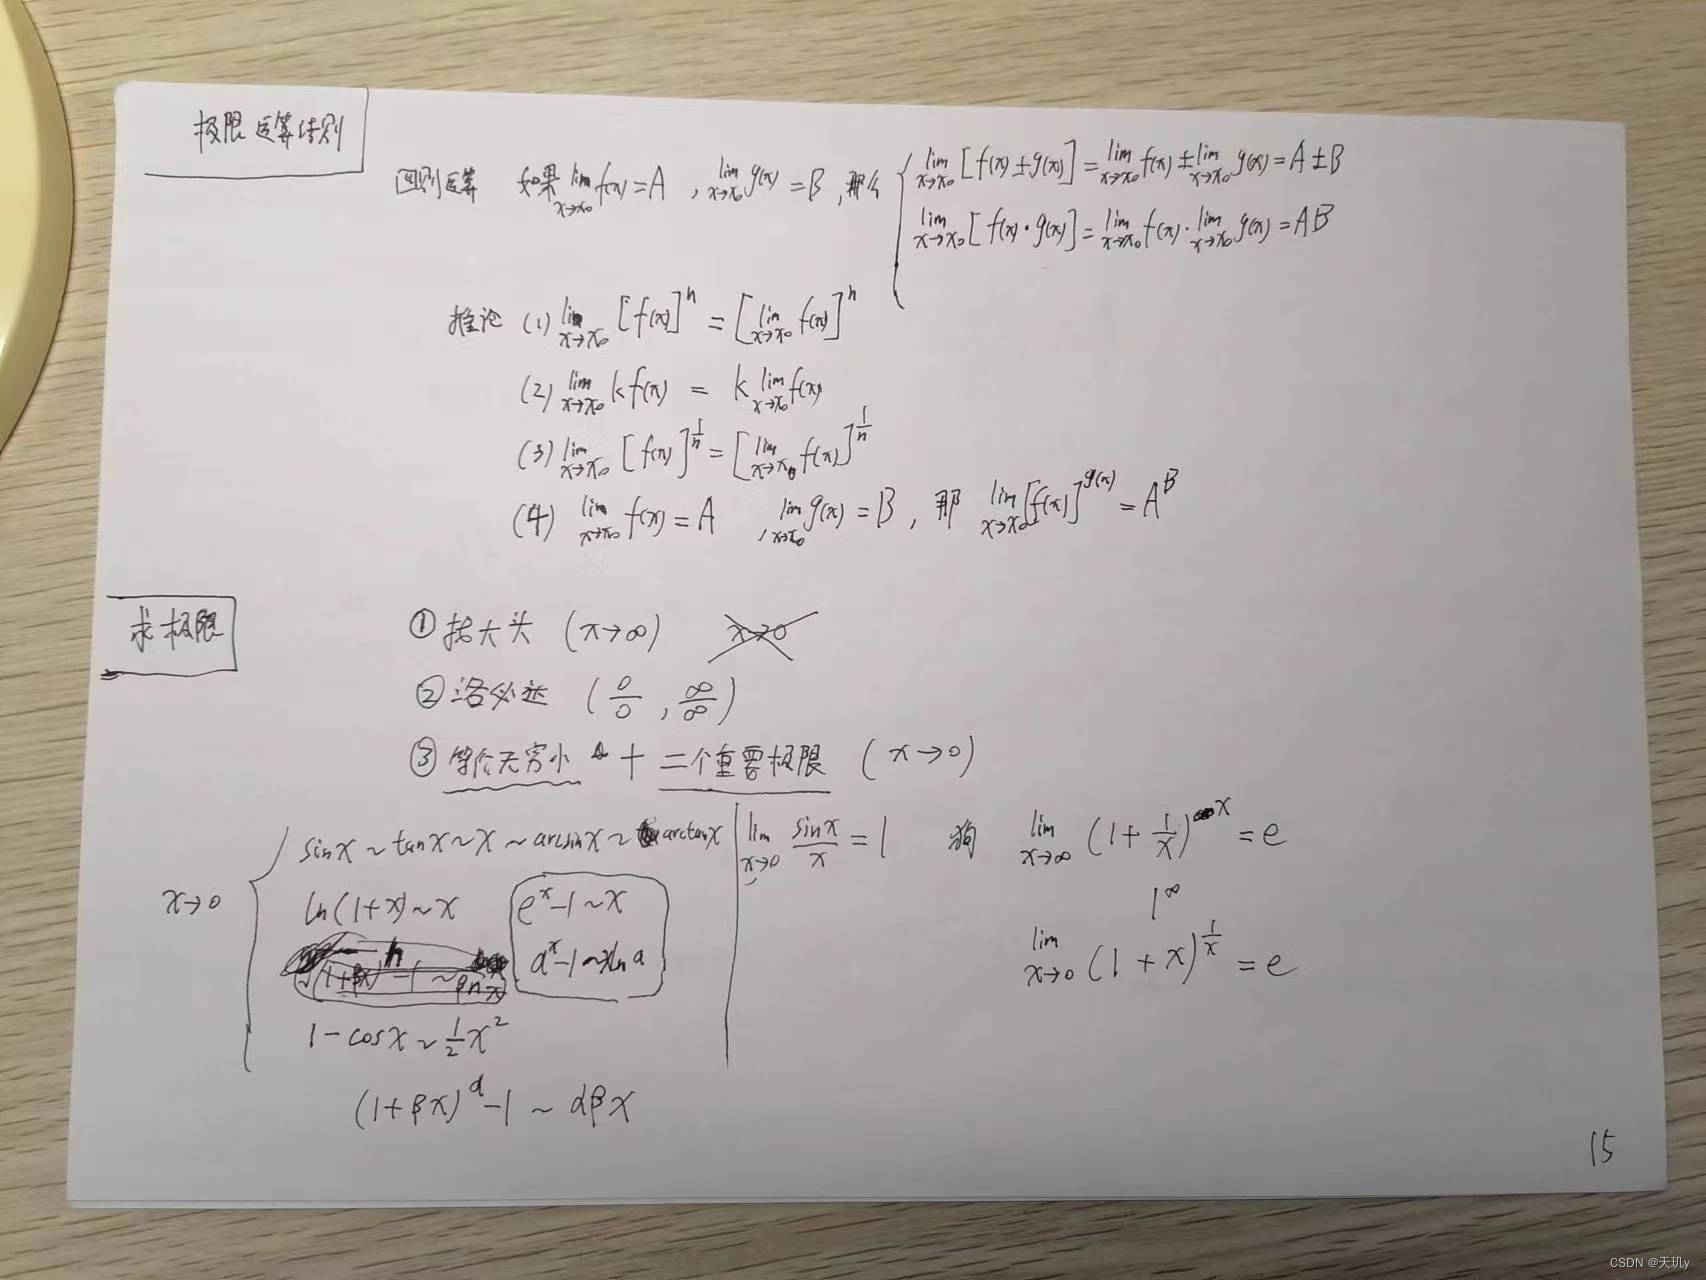 极限运算法则
四则运算 如果 lim x→x₀ f(x)=A , lim x→x₀ g(x)=B , 那么
lim x→x₀ [f(x)±g(x)] = lim x→x₀ f(x) ± lim x→x₀ g(x) = A±B
lim x→x₀ [f(x)·g(x)] = lim x→x₀ f(x)· lim x→x₀ g(x) = AB
推论 (1) lim x→x₀ [f(x)]ⁿ = [lim x→x₀ f(x)]ⁿ
(2) lim x→x₀ kf(x) = k lim x→x₀ f(x)
(3) lim x→x₀ [f(x)]^(1/n) = [lim x→x₀ f(x)]^(1/n)
(4) lim x→x₀ f(x)=A , lim x→x₀ g(x)=B , 那 lim x→x₀ [f(x)]^g(x) = A^B
求极限
① 抓大头 (x→∞) x→0
② 洛必达 (0/0 , ∞/∞)
③ 等价无穷小 + 二个重要极限 (x→0)
x→0
sinx ~ tanx ~ x ~ arcsinx ~ arctanx
ln(1+x) ~ x
eˣ-1 ~ x
aˣ-1 ~ xlna
1-cosx ~ 1/2 x²
(1+βx)^α -1 ~ αβx
lim x→0 sinx/x = 1
lim x→∞ (1+1/x)^x = e
1^∞
lim x→0 (1+x)^(1/x) = e
15
CSDN @天玑y